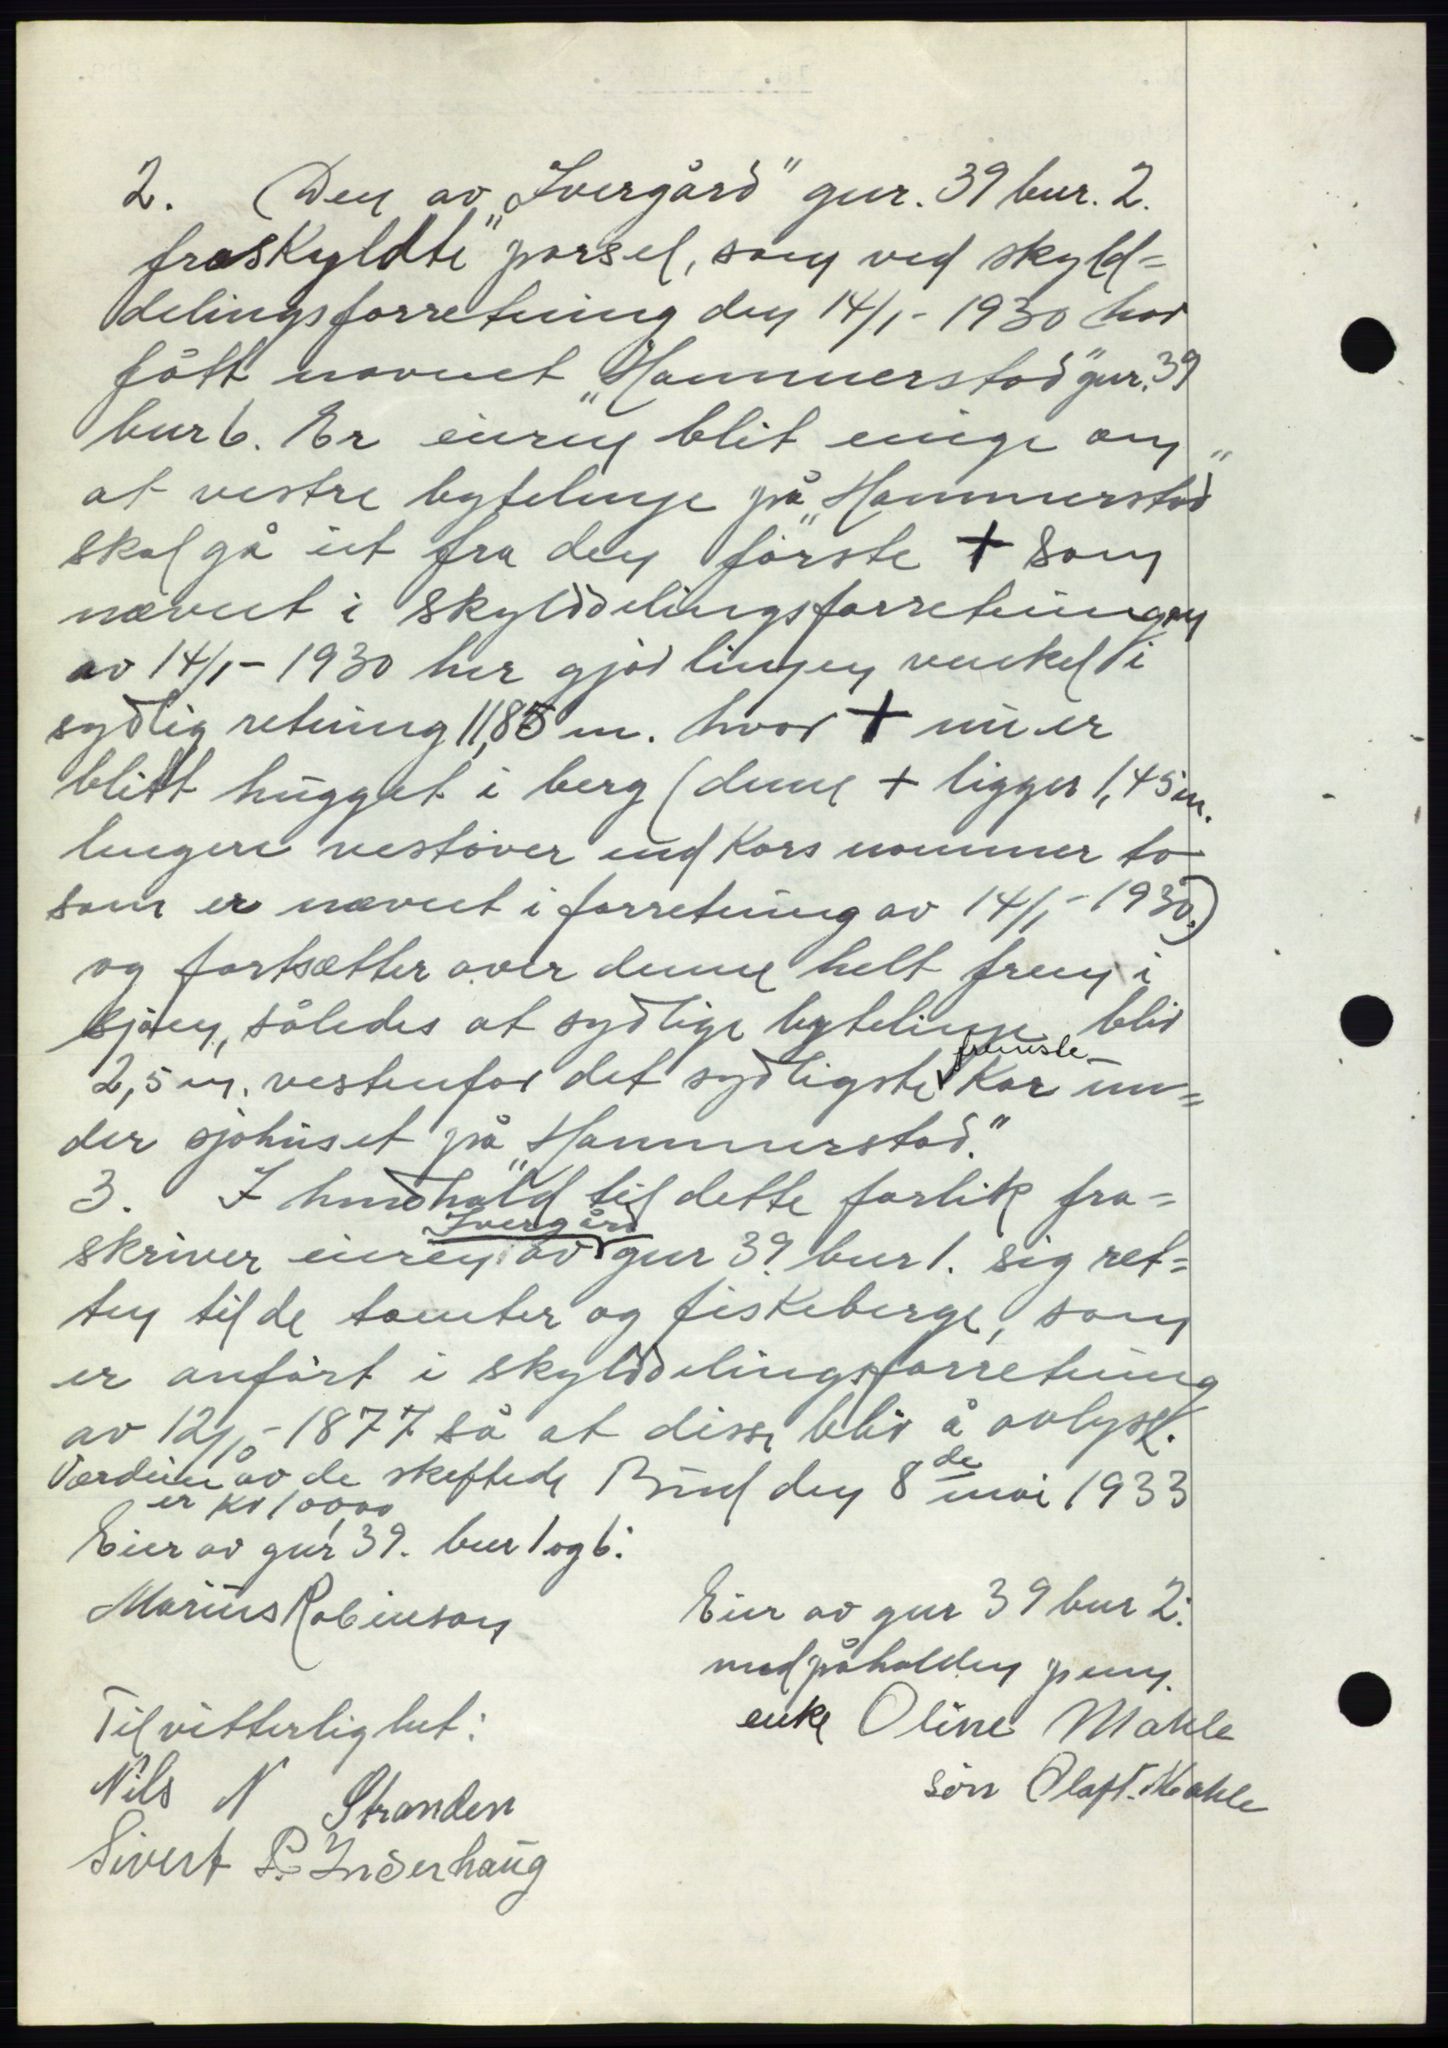 2. Den av „Ivergård" gnr. 39 bnr. 2.
fraskyldte parsel, som ved skyld=
delingsforretning den 14/1 - 1930 har
fått navnet „Hammerstad" gnr. 39
bnr 6. Er eieren blit enige om
at vestre bytelinje på „Hammerstad"
skal gå ut fra den første + som
nævnt i skylddelingsforretningen
av 14/1 - 1930 her gjør linjen venkel i
sydlig retning 11,85 m. hvor + nu er
blitt hugget i berg (denne + ligger 1,45 m.
lengere vestover end kors nommer to
som er nævnt i forretning av 14/1 - 1930.)
og fortsætter over denne helt frem i
sjøen, således at sydlige bytelinje blir
2,5 m. vestenfor det sydligste fremste kar un=
der sjøhuset på „Hammerstad".
3. I henhold til dette forlik fra=
skriver eieren av Ivergård gnr 39. bnr 1. sig ret=
ten til de tomter og fiskeberge, som
er anført i skylddelingsforretning
av 12/10 - 1877 så at disse blir å avlyse.
Værdien av de skeftede Bud den 8de mai 1933
er kr 100,00
Eier av gnr 39. bnr 1 og 6:
Marius Robinson
Eier av gnr 39 bnr 2:
med påholden penn.
enke Oline Mahle
søn Olaf T. Mahle
Til vitterlighet:
Nils N Stranden
Sivert P. Inderhaug